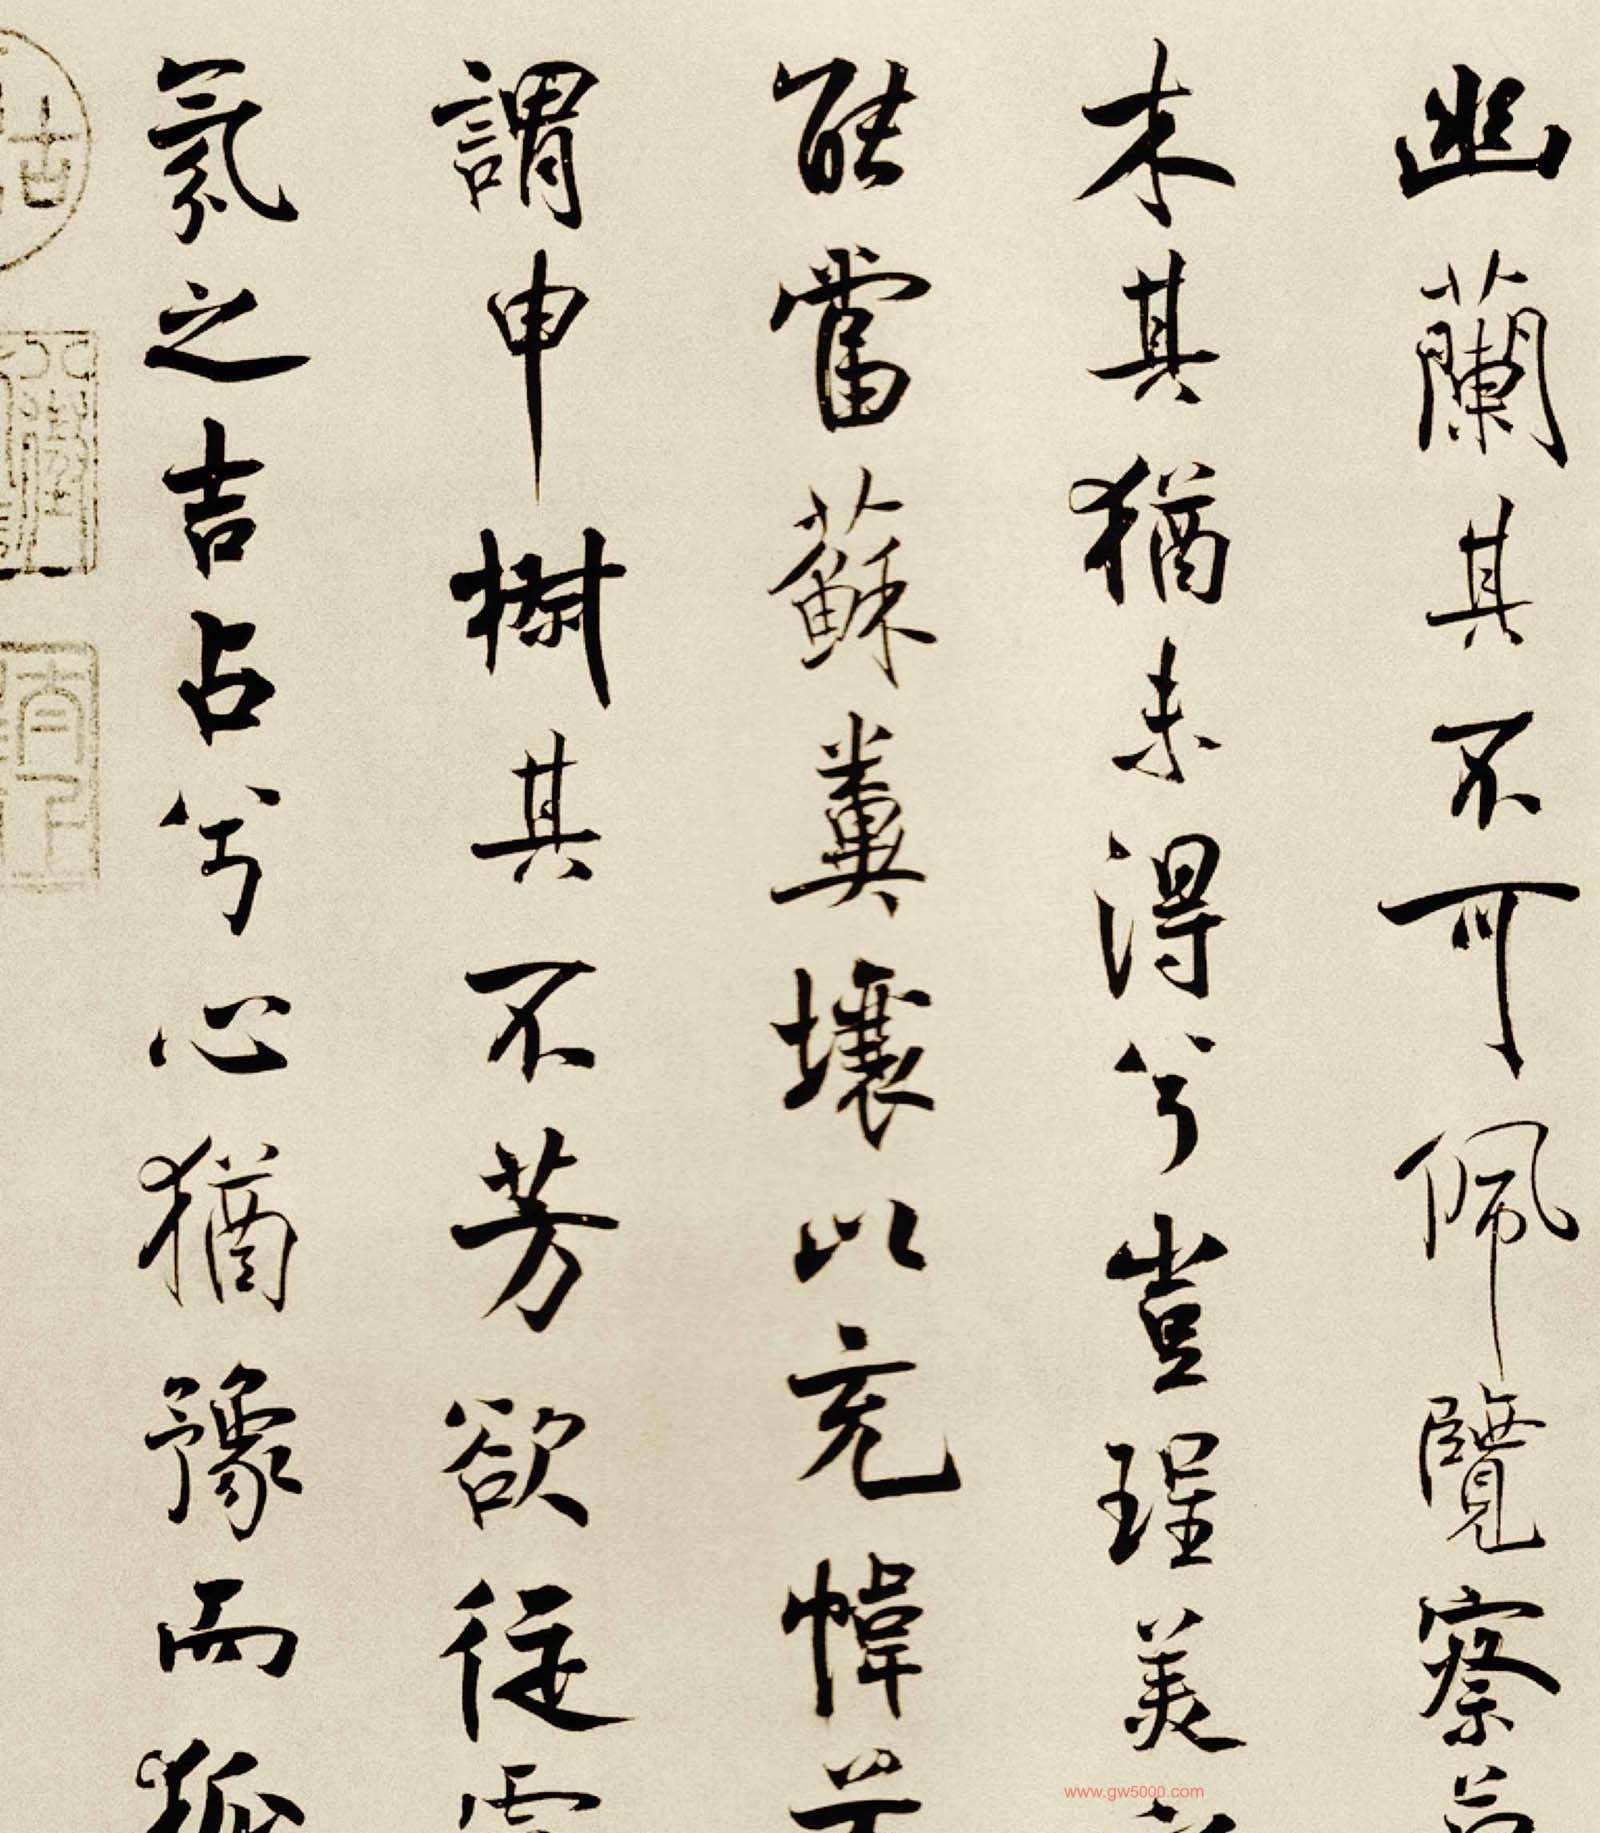 幽蘭其不可佩覽察草
木其猶未得兮豈珵美
能當蘇糞壤以充幃兮
謂申椒其不芳欲從靈
氛之吉占兮心猶豫而狐
www.gw5000.com